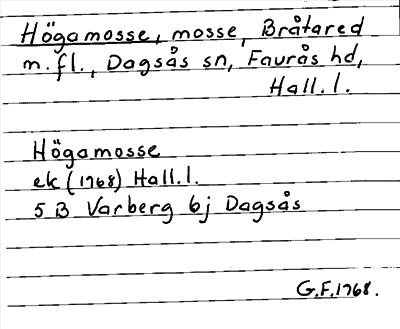 Högamosse, mosse, Bråtared
m.fl., Dagsås sn, Faurås hd,
Hall.l.
Högamosse
ek (1968) Hall.l.
5 B Varberg 6j Dagsås
G.F.1968.